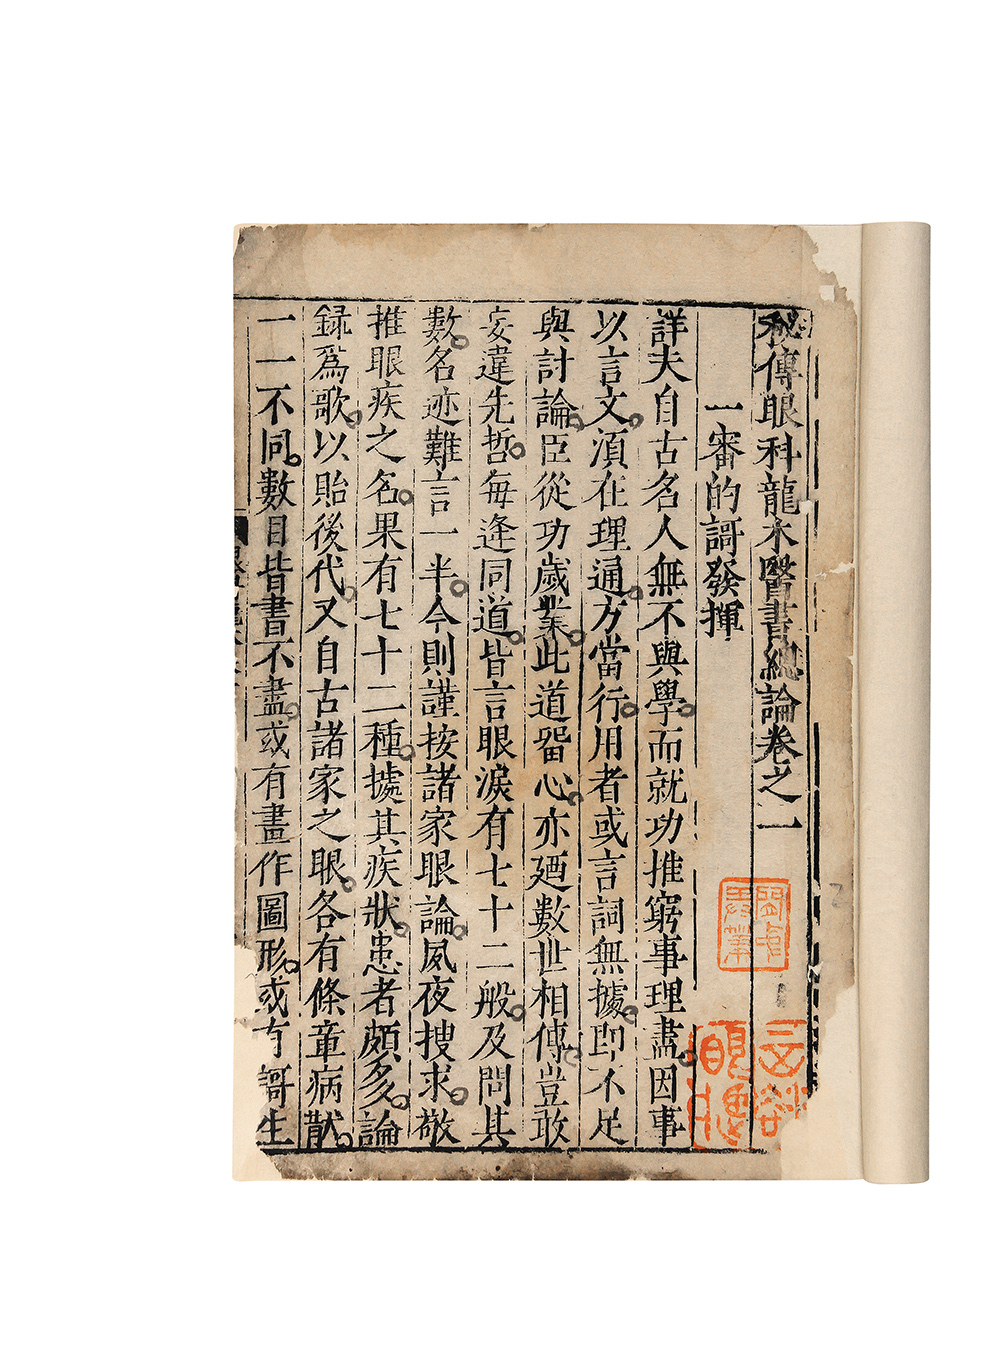 秘傳眼科龍木醫書總論卷之一
一審的謌發揮
詳夫自古名人無不與學而就功推窮事理盡因事
以言文須在理通方當行用者或言詞無據即不足
與討論臣從功歲業此道畱心亦廼數世相傳豈敢
妄違先哲每逢同道皆言眼淚有七十二般及問其
數名迹難言一半今則謹按諸家眼論夙夜搜求敬
推眼疾之名果有七十二種據其疾狀患者頗多論
録爲歌以貽後代又自古諸家之眼各有條章病狀
一一不同數目皆書不盡或有畫作圖形或有謌生